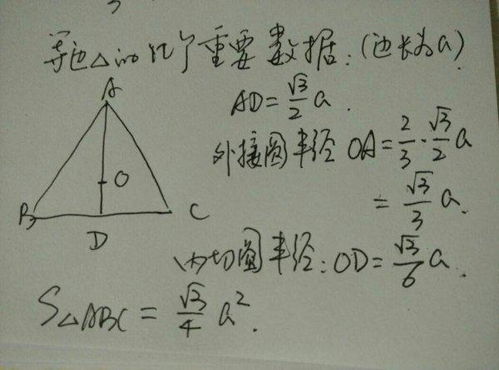 等边△的几个重要数据:(边长为a)
A
AD=√3/2 a.
外接圆半径 OA=2/3·√3/2 a
=√3/3 a.
O
B
D
C
内切圆半径:OD=√3/6 a.
S△ABC=√3/4 a².